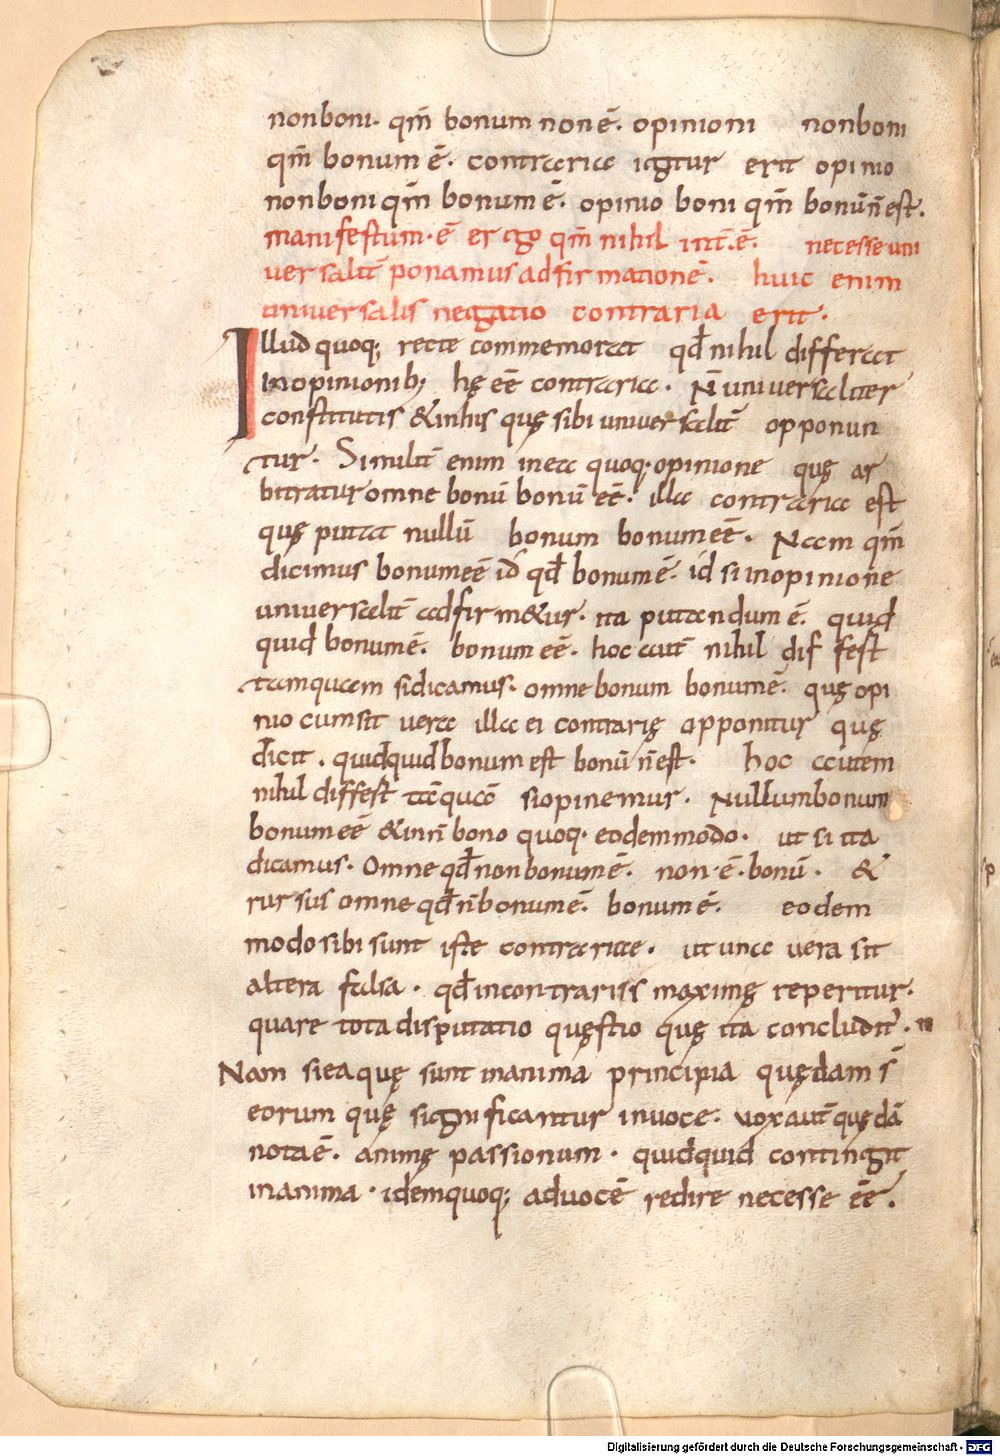 non boni. qm̄ bonum non ē. opinioni non boni
qm̄ bonum ē. contraria igitur erit opinio
non boni qm̄ bonum ē. opinio boni qm̄ bonū ñ est.
manifestum. ē ergo qm̄ nihil int̄.ē. necesse uni
uersalit̄ ponamus adfirmationē. huic enim
uniuersalis negatio contraria erit.
Illud quoq; recte commemorat qđ nihil differat
in opinionib; hę eē contrarias. N̄ uniuersaliter
constitutis & in his quę sibi uniuersalit̄ opponun
tur. Similit̄ enim in ea quoq; opinione quę ar
bitratur omne bonū bonū eē. illa contraria est
quę putat nullū bonum bonum eē. Nam qm̄
dicimus bonum eē id qđ bonum ē. id si in opinione
uniuersalit̄ adfirm&ur. ita putandum ē. quid
quid bonum ē. bonum eē. hoc aut̄ nihil dif fest
tamquam si dicamus. omne bonum bonum ē. quę opi
nio cum sit uera illa ei contrarię opponitur quę
dicit. quidquid bonum est bonū ñ est. hoc autem
nihil diffest tāquā si opinemur. Nullum bonum
bonum eē & in ñ bono quoq. eodem modo. ut si ita
dicamus. Omne qđ non bonum ē. non ē. bonū. &
rursus omne qđ ñ bonum ē. bonum ē. eodem
modo sibi sunt iste contrariae. ut una uera sit
altera falsa. qđ in contrariis maximę reperitur.
quare tota disputatio quęstio quę ita concludit̄.
Nam si ea quę sunt in anima principia quędam s̄
eorum quę significantur in uoce. uox aut̄ quędā
nota ē. animę passionum. quidquid contingit
in anima. idem quoq; ad uocē redire necesse eē.
Digitalisierung gefördert durch die Deutsche Forschungsgemeinschaft - DFG